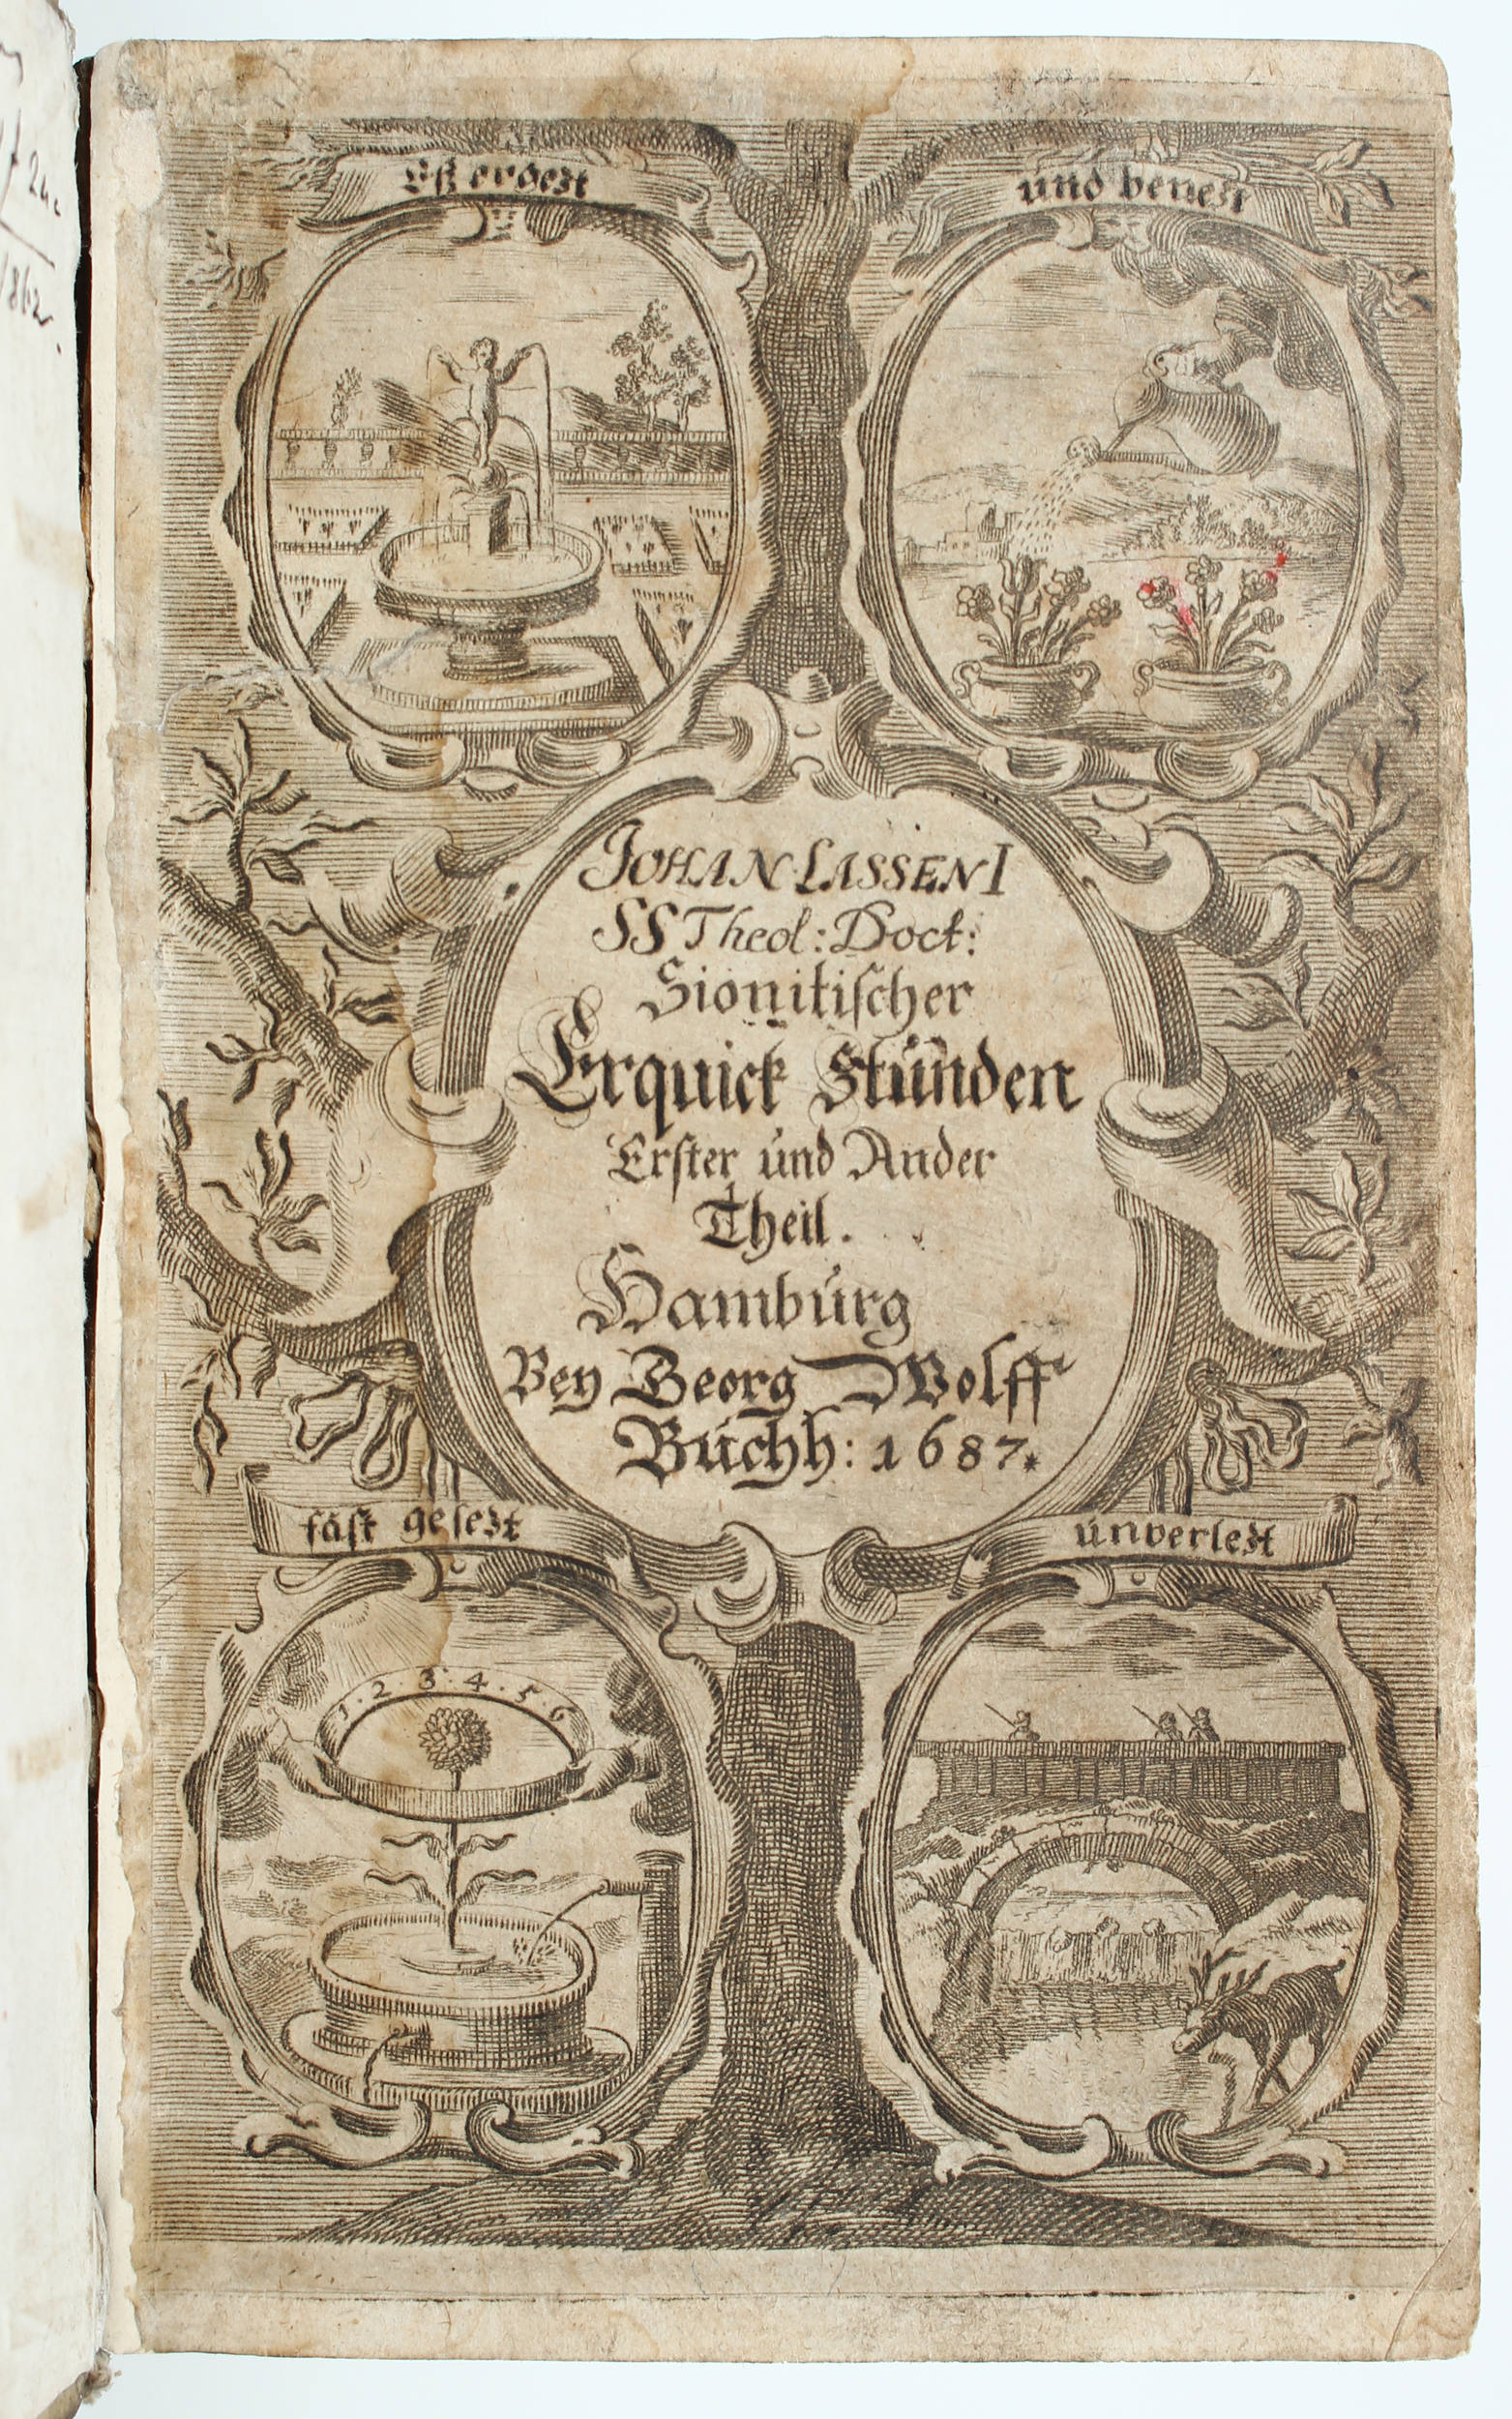 Eß ergezt
und benezt
JOHAN LASSENI
SS Theol: Doct:
Sionitischer
Erquick Stunden
Erster und Ander
Theil.
Hamburg
Bey Georg Wolff
Buchh: 1687.
fäst gesezt
unverlezt
1·2·3·4·5·6
1862